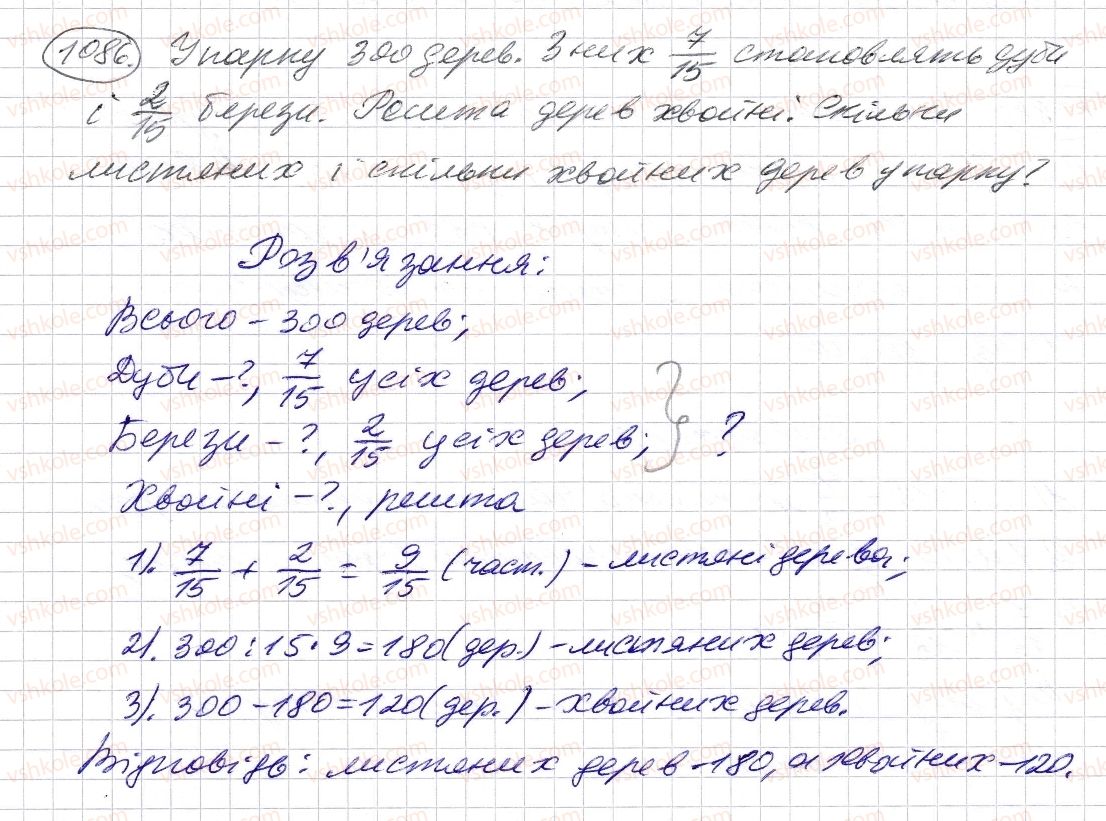 1086. У парку 300 дерев. З них 7/15 становлять дуби
і 2/15 берези. Решта дерев хвойні. Скільки
листяних і скільки хвойних дерев у парку?
Розв'язання:
Всього – 300 дерев;
Дуби – ?, 7/15 усіх дерев;
Берези – ?, 2/15 усіх дерев; } ?
Хвойні – ?, решта
1). 7/15 + 2/15 = 9/15 (част.) – листяні дерева;
2). 300 : 15 · 9 = 180 (дер.) – листяних дерев;
3). 300 – 180 = 120 (дер.) – хвойних дерев.
Відповідь: листяних дерев – 180, а хвойних – 120.
vshkole.com